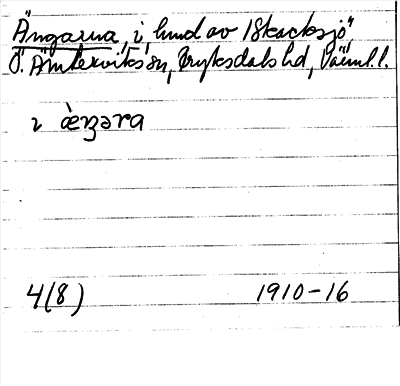 Ängarna, i, hmd av 1 Skacksjö,
Ö. Ämterviks sn, Fryksdals hd, Värml. l.
ı ὰŋəra
4(8) 1910-16